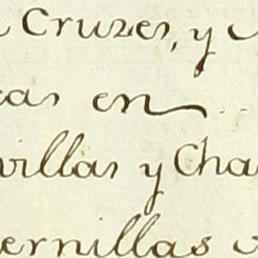 Cruzes, y
cas en
villas y Cha
ernillas